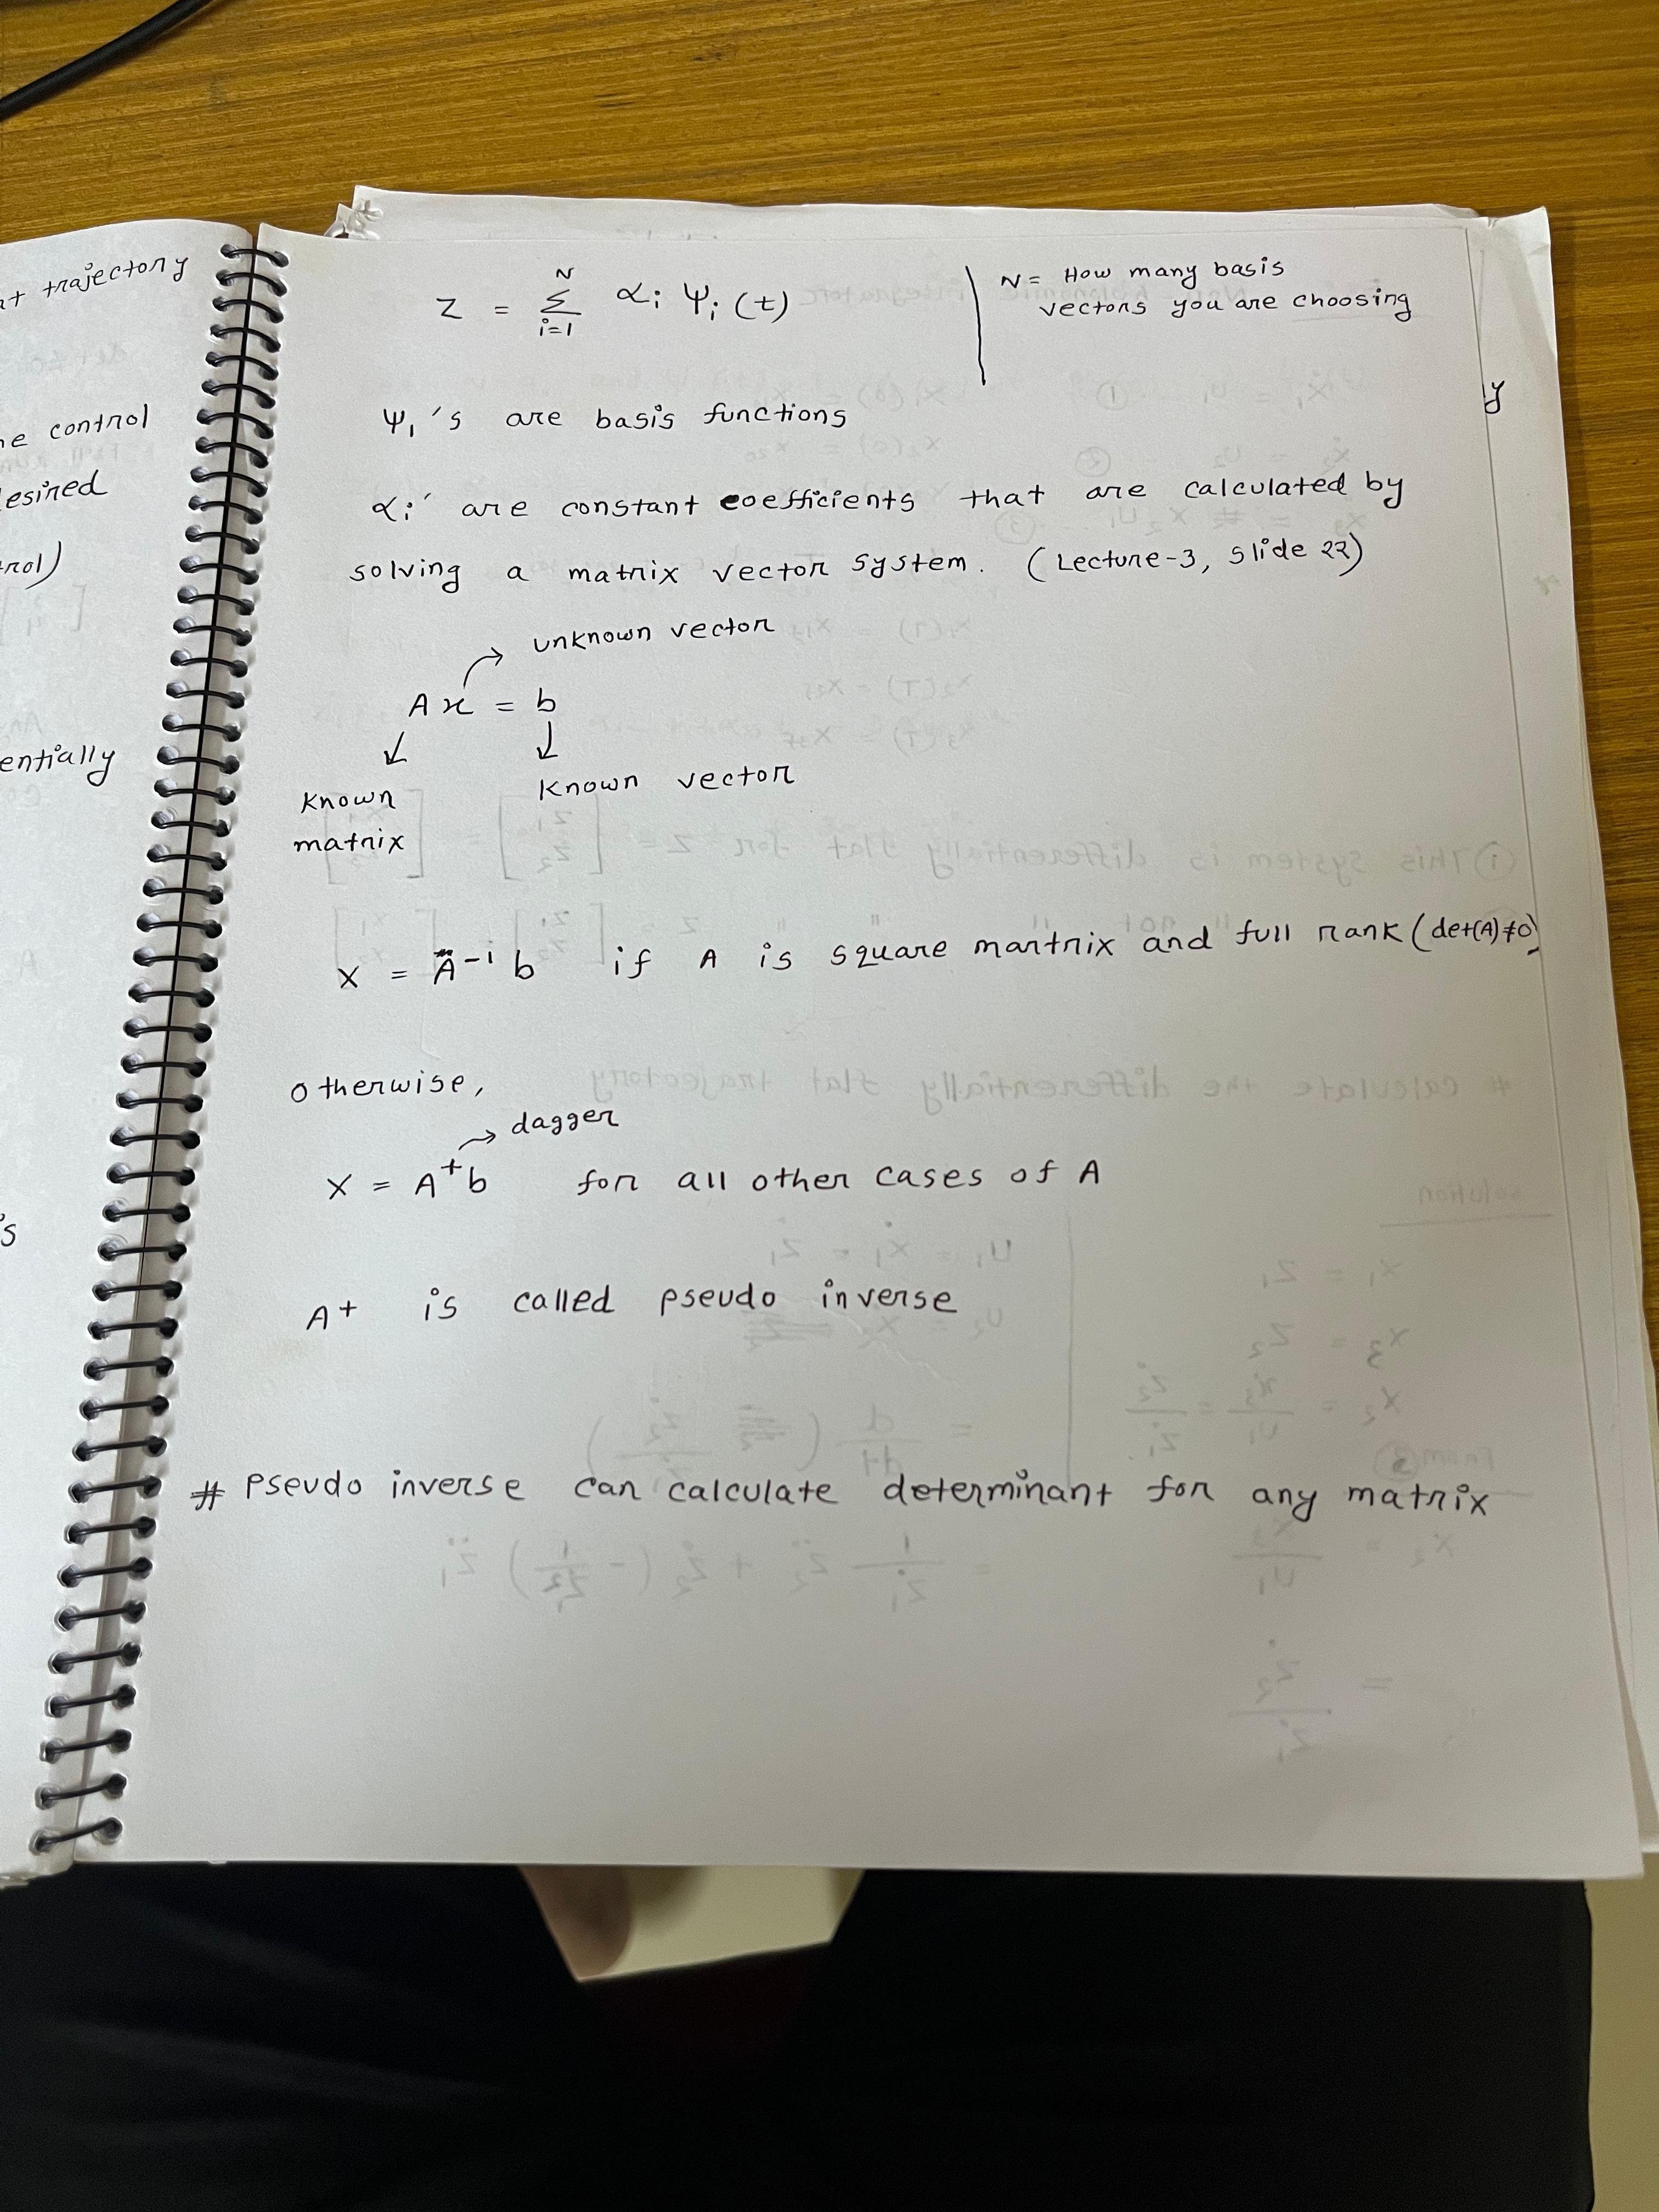 nt trajectory
ne control
esired
rol)
entially
's
Z = N Σ i=1 αi Ψi (t)
N = How many basis
vectors you are choosing
y
Ψ1's are basis functions
αi' are constant coefficients that are calculated by
solving a matrix vector system. (Lecture-3, slide 22)
unknown vector
Ax = b
Known vector
Known
matrix
x = A⁻¹ b if A is square martrix and full rank (det(A)≠0)
otherwise,
dagger
x = A⁺b for all other cases of A
A+ is called pseudo inverse
# Pseudo inverse can calculate determinant for any matrix